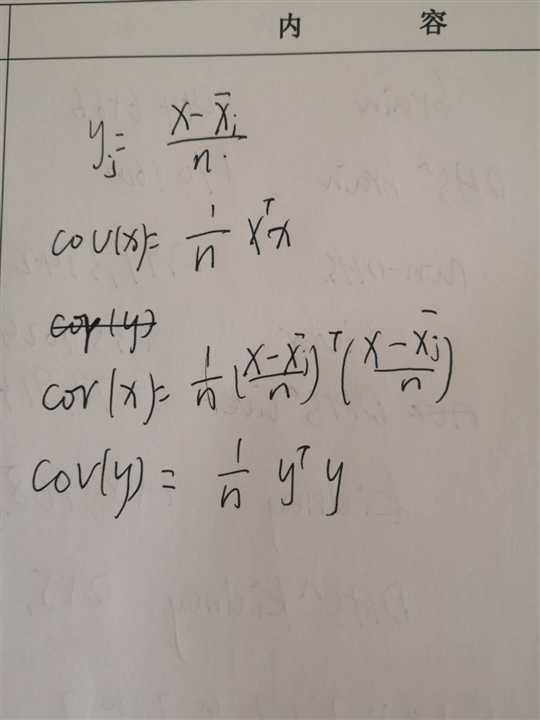 内 容
y_j = (x - x̄_j) / n
cov(x) = 1/n x^T x
cor(y)
cor(x) = 1/n ((x - x̄_j) / n)^T ((x - x̄_j) / n)
cov(y) = 1/n y^T y